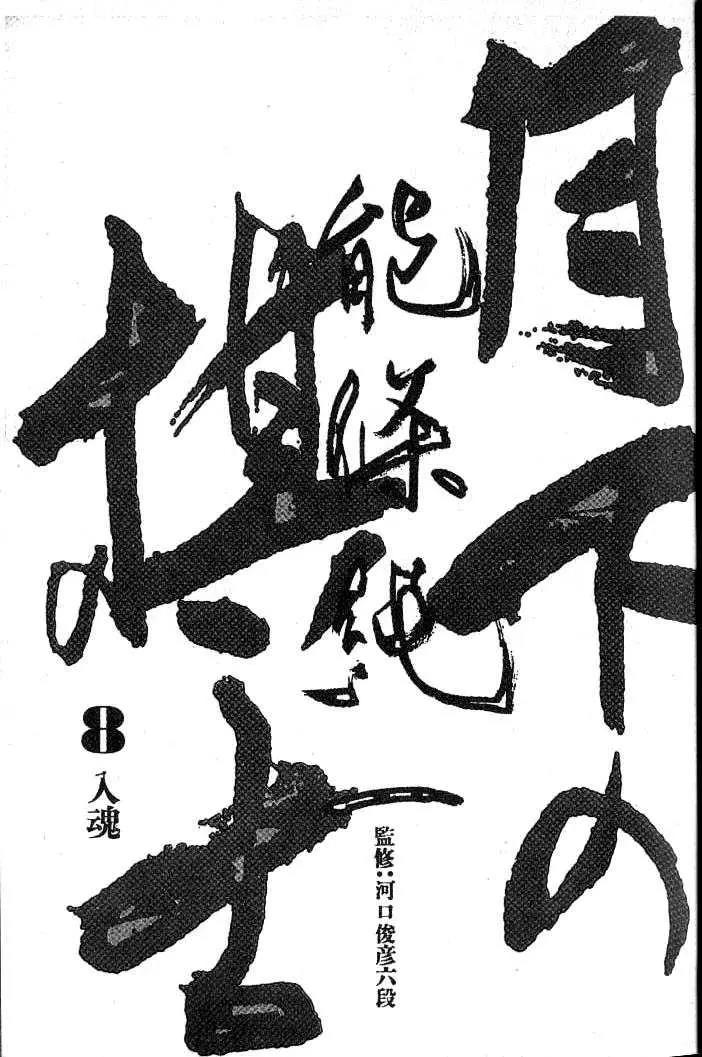 月下の
棋士
能條純一
8
入魂
監修:河口俊彦六段